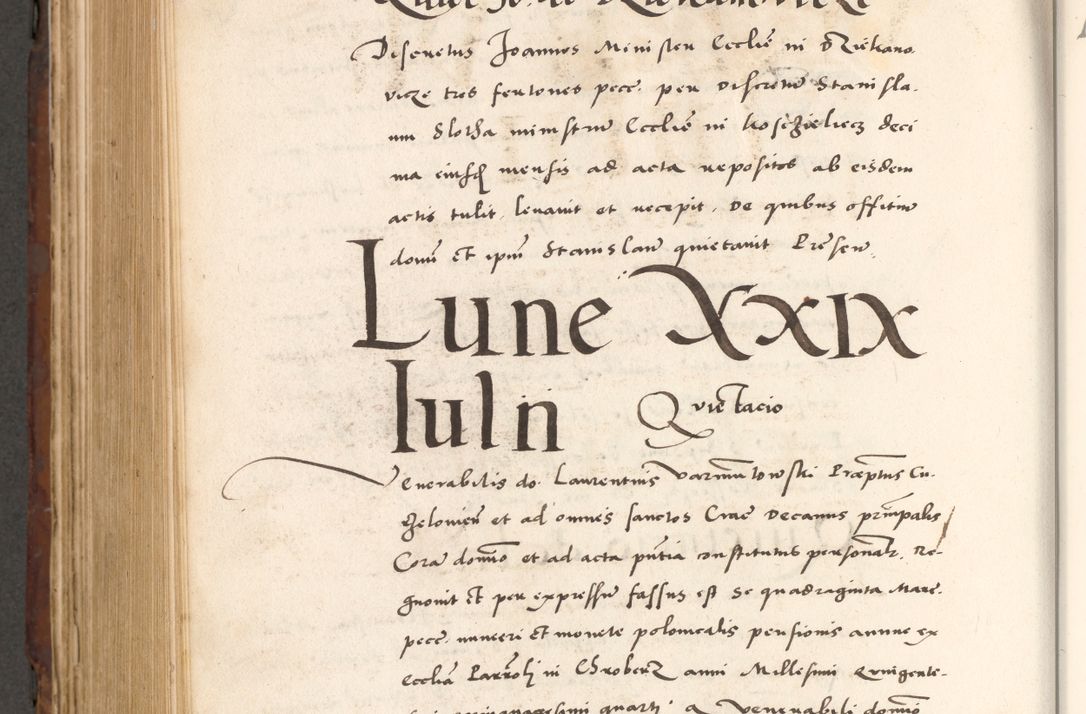 Discretus Joannes Minister Ecclie in Dziekano
vicze tres fertones pece. per Discretu Stanisla
um Slotha ministru Ecclie in Kosczielecz deci
ma eiusd mensis ad acta repositos ab eisdem
actis tulit, levavit et recepit, De quibus offitiu
domi et ipm Stanislau quietavit Presen.
Lune XXIX
Iulii Quietacio
Venerabilis do. Laurentius Varmuntowski Præptus Cu
rzelovien et ad omnes sanctos Crac Decanus prncipalis
Cora domino et ad acta pntia constitutus personalr. Re-
gnovit et per expressu fassus est se quadraginta Marc.
pece. numeri et monete polonicalis pensionis annue ex
Ecclia Parrohi in Chroberz anni Millesimi Quingente-
quinquagesimi quarti a Venerabili domino